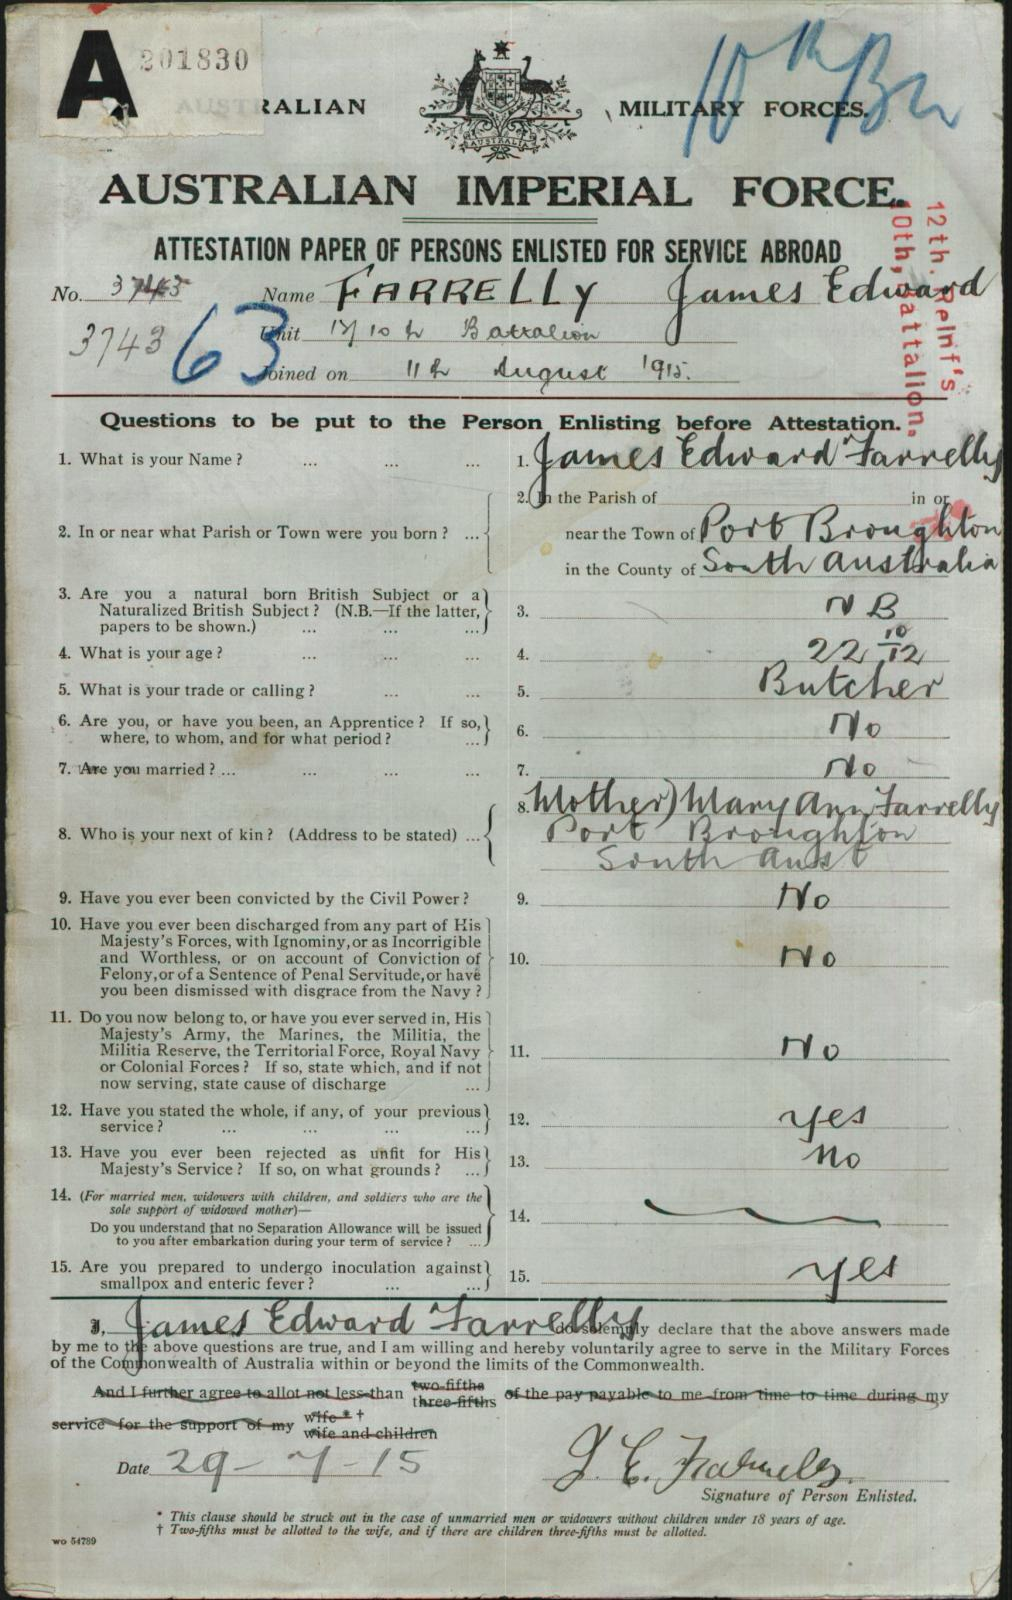 A 201830
AUSTRALIAN MILITARY FORCES.
10th Bn
AUSTRALIA
AUSTRALIAN IMPERIAL FORCE.
12th. Reinf's
10th, Battalion.
ATTESTATION PAPER OF PERSONS ENLISTED FOR SERVICE ABROAD
No. Name FARRELLY James Edward
3743 63 Unit 12/10th Battalion
Joined on 11th August 1915.
Questions to be put to the Person Enlisting before Attestation.
1. What is your Name? ... ... ... 1. James Edward Farrelly
2. In or near what Parish or Town were you born? ... 2. In the Parish of in or
near the Town of Port Broughton
in the County of South Australia
3. Are you a natural born British Subject or a
Naturalized British Subject? (N.B.—If the latter,
papers to be shown.) ... ... ... 3. N B
4. What is your age? ... ... ... 4. 22 10/12
5. What is your trade or calling? ... ... 5. Butcher
6. Are you, or have you been, an Apprentice? If so,
where, to whom, and for what period? ... 6. No
7. Are you married? ... ... ... ... 7. No
8. Who is your next of kin? (Address to be stated) ... 8. Mother) Mary Ann Farrelly
Port Broughton
South Aust
9. Have you ever been convicted by the Civil Power? 9. No
10. Have you ever been discharged from any part of His
Majesty's Forces, with Ignominy, or as Incorrigible
and Worthless, or on account of Conviction of
Felony, or of a Sentence of Penal Servitude, or have
you been dismissed with disgrace from the Navy? 10. No
11. Do you now belong to, or have you ever served in, His
Majesty's Army, the Marines, the Militia, the
Militia Reserve, the Territorial Force, Royal Navy
or Colonial Forces? If so, state which, and if not
now serving, state cause of discharge ... 11. No
12. Have you stated the whole, if any, of your previous
service? ... ... ... ... 12. yes
13. Have you ever been rejected as unfit for His
Majesty's Service? If so, on what grounds? ... 13. No
14. (For married men, widowers with children, and soldiers who are the
sole support of widowed mother)—
Do you understand that no Separation Allowance will be issued
to you after embarkation during your term of service? ... 14.
15. Are you prepared to undergo inoculation against
smallpox and enteric fever? ... ... 15. yes
I, James Edward Farrelly do solemnly declare that the above answers made
by me to the above questions are true, and I am willing and hereby voluntarily agree to serve in the Military Forces
of the Commonwealth of Australia within or beyond the limits of the Commonwealth.
And I further agree to allot not less than two-fifths three-fifths of the pay payable to me from time to time during my
service for the support of my wife * † wife and children
Date 29-7-15 J. E. Farrelly.
Signature of Person Enlisted.
* This clause should be struck out in the case of unmarried men or widowers without children under 18 years of age.
† Two-fifths must be allotted to the wife, and if there are children three-fifths must be allotted.
WO 54789